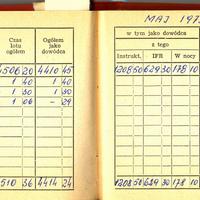 MAJ 197
Czas
lotu
ogółem
Ogółem
jako
dowódca
w tym jako dowódca
z tego
Instrukt.
IFR
W nocy
4506 20 4410 45
1 40 1 40
1 30 1 30
1 06 – 29
1208 50 629 30 178 10
510 36 4414 24
1208 50 629 30 178 10